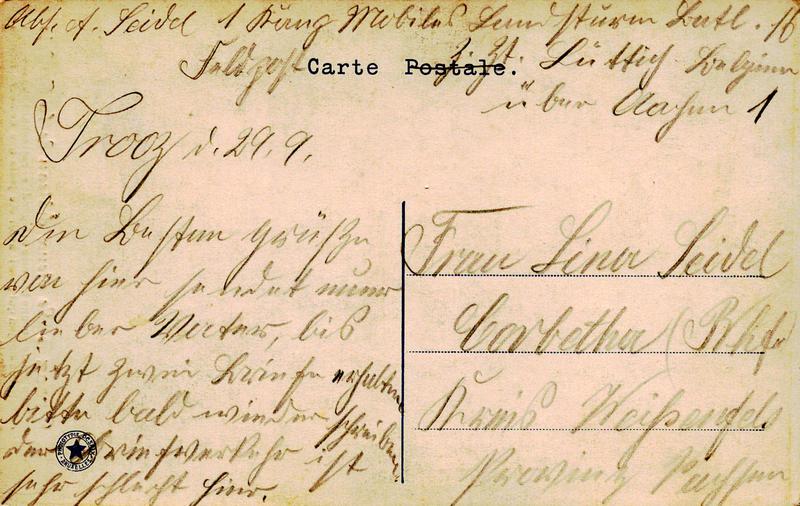 Abs. A. Seidel 1 Komp Mobiles Landsturm Batl. 16
Feldpost z. Zt. Lüttich Belgien
Carte Postale.
über Aachen 1
Trooz d. 29. 9.
Die Besten Grüße
von hier sendet euer
lieber Vater, bis
jetzt zwei Briefe erhalten
bitte bald wieder schreiben
der Briefverkehr ist
sehr schlecht hier.
Frau Lina Seidel
Corbetha (Bhf)
Kreis Weißenfels
Provinz Sachsen